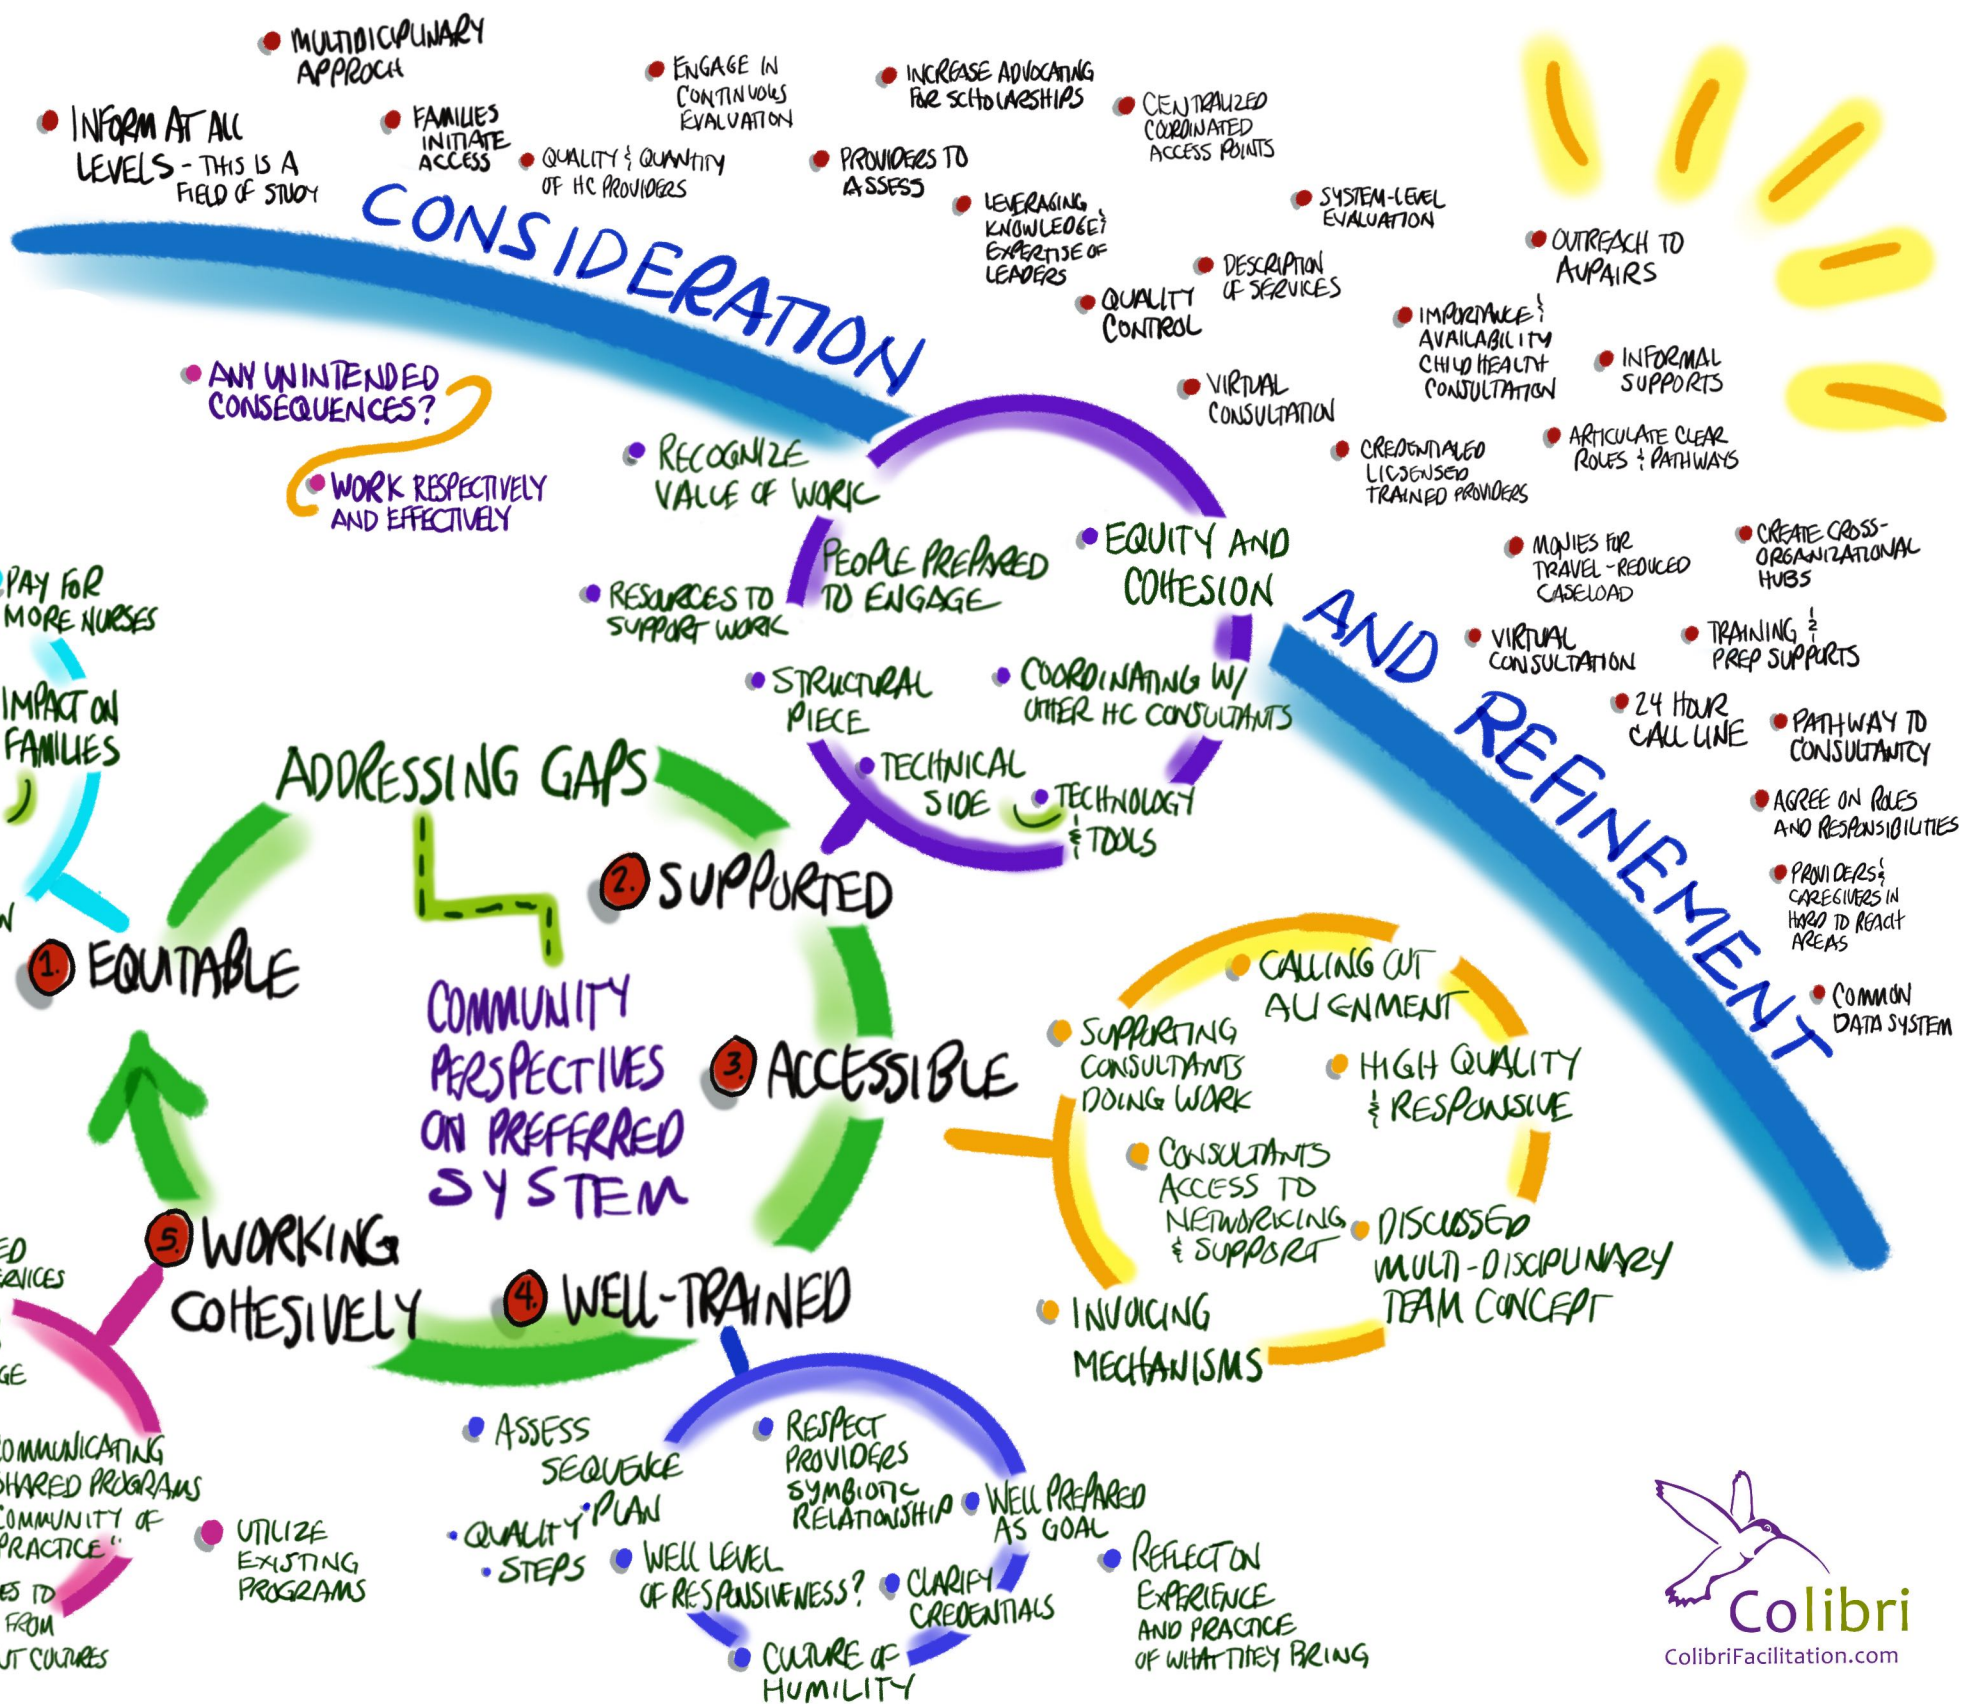 MULTIDICIPLINARY
APPROCH
INFORM AT ALL
LEVELS - THIS IS A
FIELD OF STUDY
FAMILIES
INITIATE
ACCESS
ENGAGE IN
CONTINUOUS
EVALUATION
QUALITY & QUANTITY
OF HC PROVIDERS
INCREASE ADVOCATING
FOR SCHOLARSHIPS
PROVIDERS TO
ASSESS
CENTRALIZED
COORDINATED
ACCESS POINTS
LEVERAGING
KNOWLEDGE &
EXPERTISE OF
LEADERS
SYSTEM-LEVEL
EVALUATION
DESCRIPTION
OF SERVICES
QUALITY
CONTROL
OUTREACH TO
AUPAIRS
IMPORTANCE &
AVAILABILITY
CHILD HEALTH
CONSULTATION
INFORMAL
SUPPORTS
VIRTUAL
CONSULTATION
CREDENTIALED
LICSENSED
TRAINED PROVIDERS
ARTICULATE CLEAR
ROLES & PATHWAYS
MONIES FOR
TRAVEL - REDUCED
CASELOAD
CREATE CROSS-
ORGANIZATIONAL
HUBS
VIRTUAL
CONSULTATION
TRAINING &
PREP SUPPORTS
24 HOUR
CALL LINE
PATHWAY TO
CONSULTANTCY
AGREE ON ROLES
AND RESPONSIBILITIES
PROVIDERS &
CAREGIVERS IN
HARD TO REACH
AREAS
COMMON
DATA SYSTEM
CONSIDERATION
AND REFINEMENT
ANY UNINTENDED
CONSEQUENCES?
WORK RESPECTIVELY
AND EFFECTIVELY
RECOGNIZE
VALUE OF WORK
PEOPLE PREPARED
TO ENGAGE
EQUITY AND
COHESION
RESOURCES TO
SUPPORT WORK
STRUCTURAL
PIECE
COORDINATING W/
OTHER HC CONSULTANTS
TECHNICAL
SIDE
TECHNOLOGY
& TOOLS
PAY FOR
MORE NURSES
IMPACT ON
FAMILIES
ADDRESSING GAPS
COMMUNITY
PERSPECTIVES
ON PREFERRED
SYSTEM
1. EQUITABLE
2. SUPPORTED
3. ACCESSIBLE
4. WELL-TRAINED
5. WORKING
COHESIVELY
CALLING OUT
ALIGNMENT
SUPPORTING
CONSULTANTS
DOING WORK
HIGH QUALITY
& RESPONSIVE
CONSULTANTS
ACCESS TO
NETWORKING
& SUPPORT
DISCUSSED
MULTI-DISCIPLINARY
TEAM CONCEPT
INVOICING
MECHANISMS
ASSESS
SEQUENCE
PLAN
QUALITY
STEPS
RESPECT
PROVIDERS
SYMBIOTIC
RELATIONSHIP
WELL PREPARED
AS GOAL
WELL LEVEL
OF RESPONSIVENESS?
CLARIFY
CREDENTIALS
CULTURE OF
HUMILITY
REFLECT ON
EXPERIENCE
AND PRACTICE
OF WHAT THEY BRING
OMMUNICATING
HARED PROGRAMS
OMMUNITY OF
PRACTICE"
ES TO
FROM
NT CULTURES
UTILIZE
EXISTING
PROGRAMS
Colibri
ColibriFacilitation.com